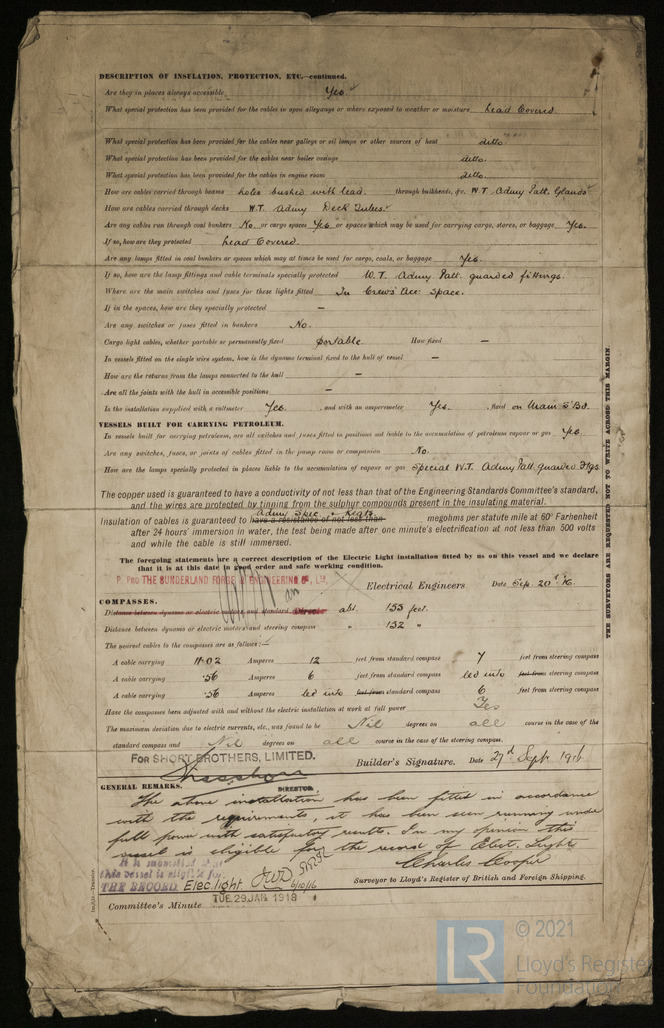 DESCRIPTION OF INSULATION, PROTECTION, ETC.—continued.
Are they in places always accessible Yes.
What special protection has been provided for the cables in open alleyways or where exposed to weather or moisture Lead Covered.
What special protection has been provided for the cables near galleys or oil lamps or other sources of heat ditto
What special protection has been provided for the cables near boiler casings ditto.
What special protection has been provided for the cables in engine room ditto.
How are cables carried through beams holes bushed with lead. through bulkheads, &c. W.T. Admy Patt. Glands
How are cables carried through decks W.T. Admy Deck Tubes.
Are any cables run through coal bunkers No. or cargo spaces Yes. or spaces which may be used for carrying cargo, stores, or baggage Yes.
If so, how are they protected Lead Covered.
Are any lamps fitted in coal bunkers or spaces which may at times be used for cargo, coals, or baggage Yes.
If so, how are the lamp fittings and cable terminals specially protected W.T. Admy Patt. guarded fittings.
Where are the main switches and fuses for these lights fitted In Crews' Acc: Space.
If in the spaces, how are they specially protected —
Are any switches or fuses fitted in bunkers No.
Cargo light cables, whether portable or permanently fixed portable How fixed —
In vessels fitted on the single wire system, how is the dynamo terminal fixed to the hull of vessel —
How are the returns from the lamps connected to the hull —
Are all the joints with the hull in accessible positions —
Is the installation supplied with a voltmeter Yes. , and with an amperemeter Yes. , fixed on Main S'Bd.
VESSELS BUILT FOR CARRYING PETROLEUM.
In vessels built for carrying petroleum, are all switches and fuses fitted in positions not liable to the accumulation of petroleum vapour or gas Yes.
Are any switches, fuses, or joints of cables fitted in the pump room or companion No.
How are the lamps specially protected in places liable to the accumulation of vapour or gas Special W.T. Admy Patt. guarded Ftgs.
The copper used is guaranteed to have a conductivity of not less than that of the Engineering Standards Committee's standard,
and the wires are protected by tinning from the sulphur compounds present in the insulating material.
Admy Spec. & Regts.
Insulation of cables is guaranteed to have a resistance of not less than megohms per statute mile at 60° Farhenheit
after 24 hours' immersion in water, the test being made after one minute's electrification at not less than 500 volts
and while the cable is still immersed.
The foregoing statements are a correct description of the Electric Light installation fitted by us on this vessel and we declare
that it is at this date in good order and safe working condition.
P. PRO THE SUNDERLAND FORGE & ENGINEERING Co., Ltd. Electrical Engineers Date Sep. 20th 16.
COMPASSES.
Distance between dynamo or electric motors and standard abt. 155 feet.
Distance between dynamo or electric motors and steering compass " 152 "
The nearest cables to the compasses are as follows:—
A cable carrying 11.02 Amperes 12 feet from standard compass 7 feet from steering compass
A cable carrying .56 Amperes 6 feet from standard compass led into feet from steering compass
A cable carrying .56 Amperes led into feet from standard compass 6 feet from steering compass
Have the compasses been adjusted with and without the electric installation at work at full power Yes
The maximum deviation due to electric currents, etc., was found to be Nil degrees on all course in the case of the
standard compass and Nil degrees on all course in the case of the steering compass.
FOR SHORT BROTHERS, LIMITED.
Builder's Signature. Date 27th Sept 1916
DIRECTOR
GENERAL REMARKS.
The above installation has been fitted in accordance
with the requirements, it has been seen running under
full power with satisfactory results. In my opinion this
vessel is eligible for the record of Elect. Light
It is submitted that
this vessel is eligible for
THE RECORD. Elec. light. 6/10/16
Charles Cooper
Surveyor to Lloyd's Register of British and Foreign Shipping.
Committee's Minute TUE. 29 JAN 1918
THE SURVEYORS ARE REQUESTED NOT TO WRITE ACROSS THIS MARGIN.
LR
© 2021
Lloyd's Register
Foundation